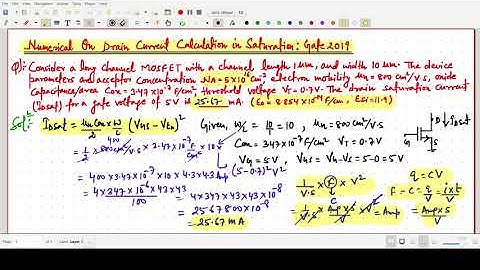 Numerical On Drain Current Calculation in Saturation: Gate 2019
Q): Consider a long channel MOSFET with a channel length 1μm, and width 10 μm. The device
parameters and acceptor concentration NA = 5×10¹⁶ cm⁻³ electron mobility μn = 800 cm²/V.s, oxide
capacitance/area Cox = 3.47×10⁻⁷ F/cm², threshold voltage VT = 0.7V. The drain saturation current
(IDsat) for a gate voltage of 5V is 25.67 mA. (ε0 = 8.854×10⁻¹⁴ F/cm, εsi = 11.9)
Solⁿ: IDsat = μn Cox W/2 L (VGS - Vth)² Given, W/L = 10/1 = 10, μn = 800 cm²/V.s
= 1/2 × 800 cm²/V.s × 3.47×10⁻⁷ F/cm² × 10 × (5-0.7)² V² Cox = 3.47×10⁻⁷ VT = 0.7V
400
VG = 5V, VGS = VG - VS = 5-0 = 5V
= 400 × 3.47×10⁻⁷ × 10 × 4.3×4.3 Amp
= 4×347×10⁻⁶×43×43/100 = 4×347×43×43×10⁻⁸
= 25.67800×10⁻⁸
= 25.67 mA
1/V.s × F × V²
= 1/V.s × Amp×s/V × V² = Amp
q = CV
F = C = q/V = i×t/V
= Amp×s/V
G
D
S
IDsat